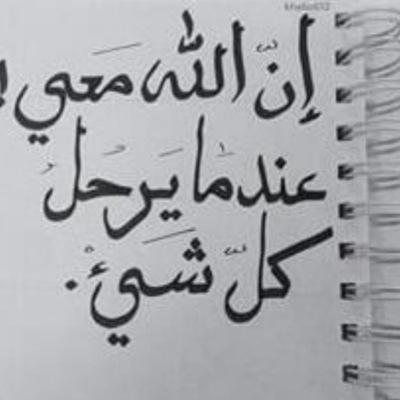 إنّ الله معي
عندما يرحل
كلّ شيء.